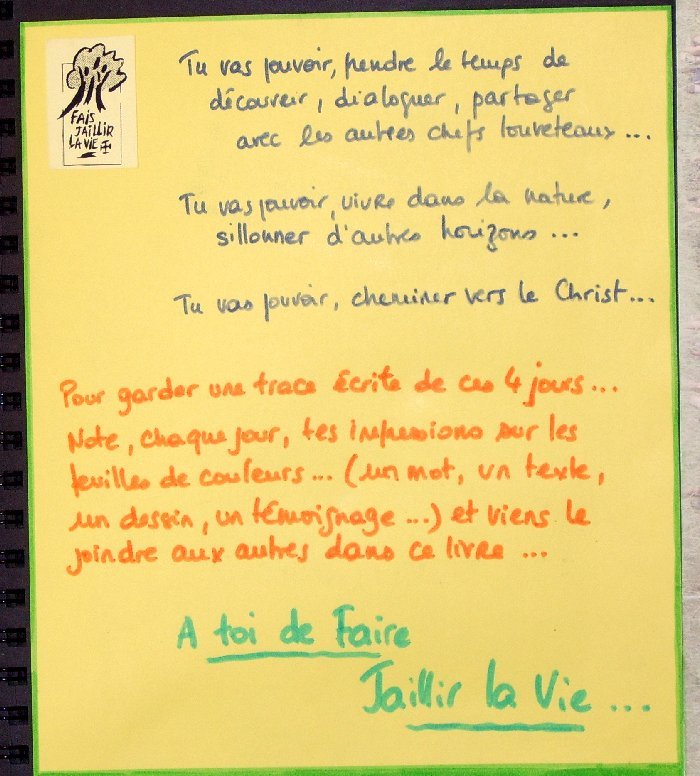 FAIS
JAILLIR
LA VIE
Tu vas pouvoir, prendre le temps de
découvrir, dialoguer, partager
avec les autres chefs louveteaux...
Tu vas pouvoir, vivre dans la nature,
sillonner d'autres horizons...
Tu vas pouvoir, cheminer vers le Christ...
Pour garder une trace écrite de ces 4 jours...
Note, chaque jour, tes impressions sur les
feuilles de couleurs... (un mot, un texte,
un dessin, un témoignage...) et viens le
joindre aux autres dans ce livre...
A toi de Faire
Jaillir la Vie...